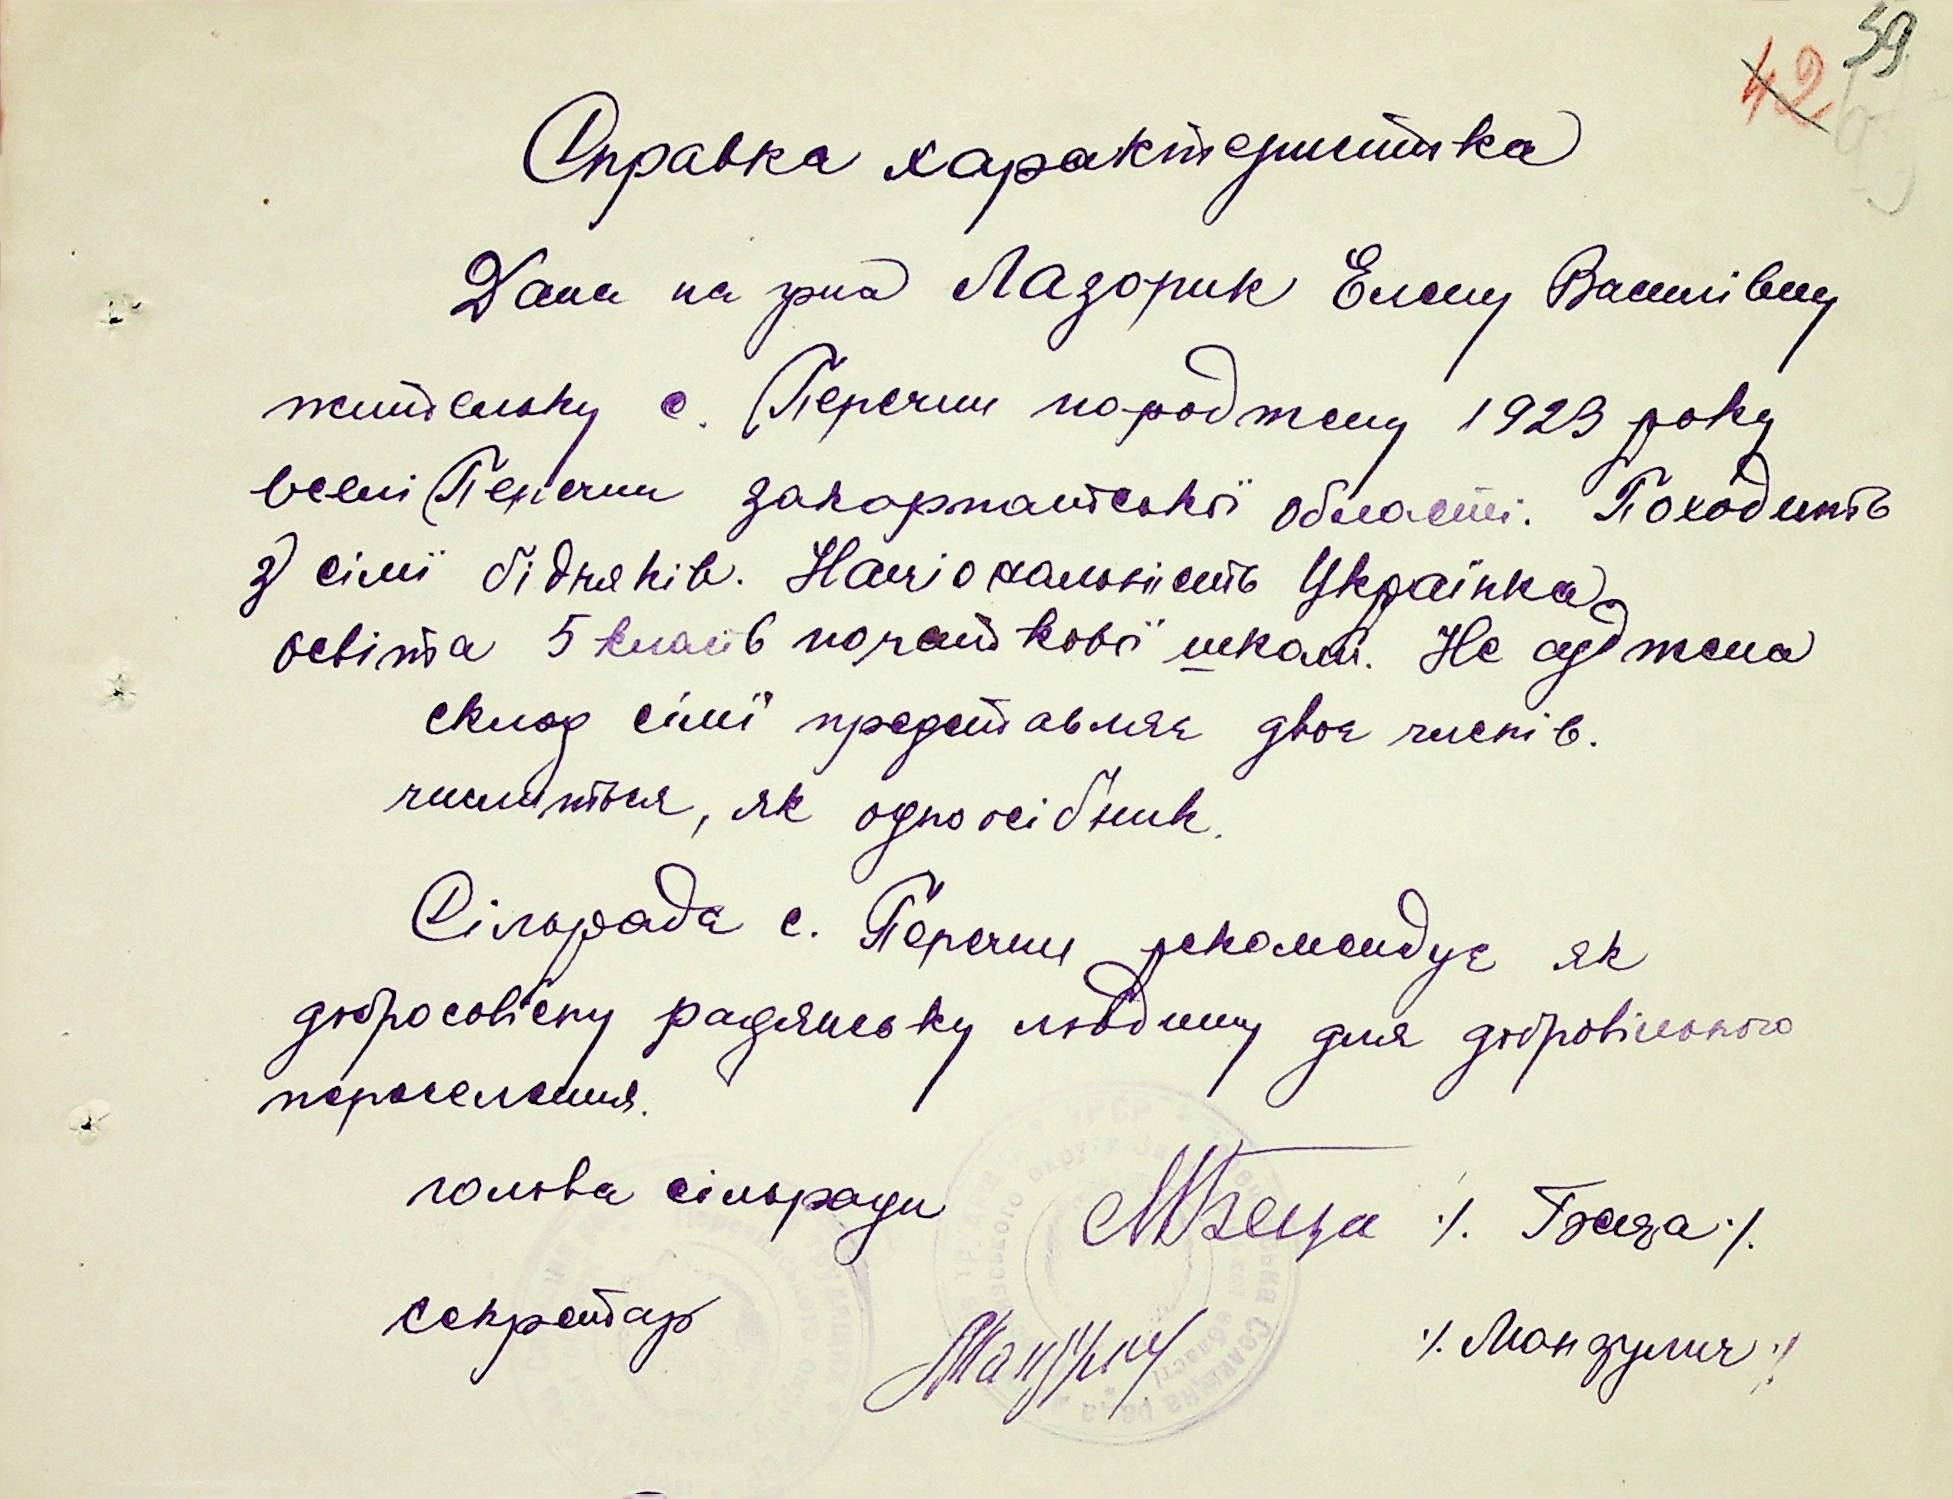 59
42
Справка характеристика
Дана на гр-на Лазорик Елену Василівну
жительку с. Перечин народжену 1923 року
вселі Перечин закарпатської області. Походить
з сімї бідняків. Національність Українка
освіта 5 класів початкової школи. Не суджена
склад сімї представляє двоє членів.
числиться, як одноосібник.
Сільрада с. Перечин рекомендує як
добросовісну радянську людину для добровільного
переселення.
голова сільради ·/. Бреза ·/.
секретар ·/. Манзулич ·/.